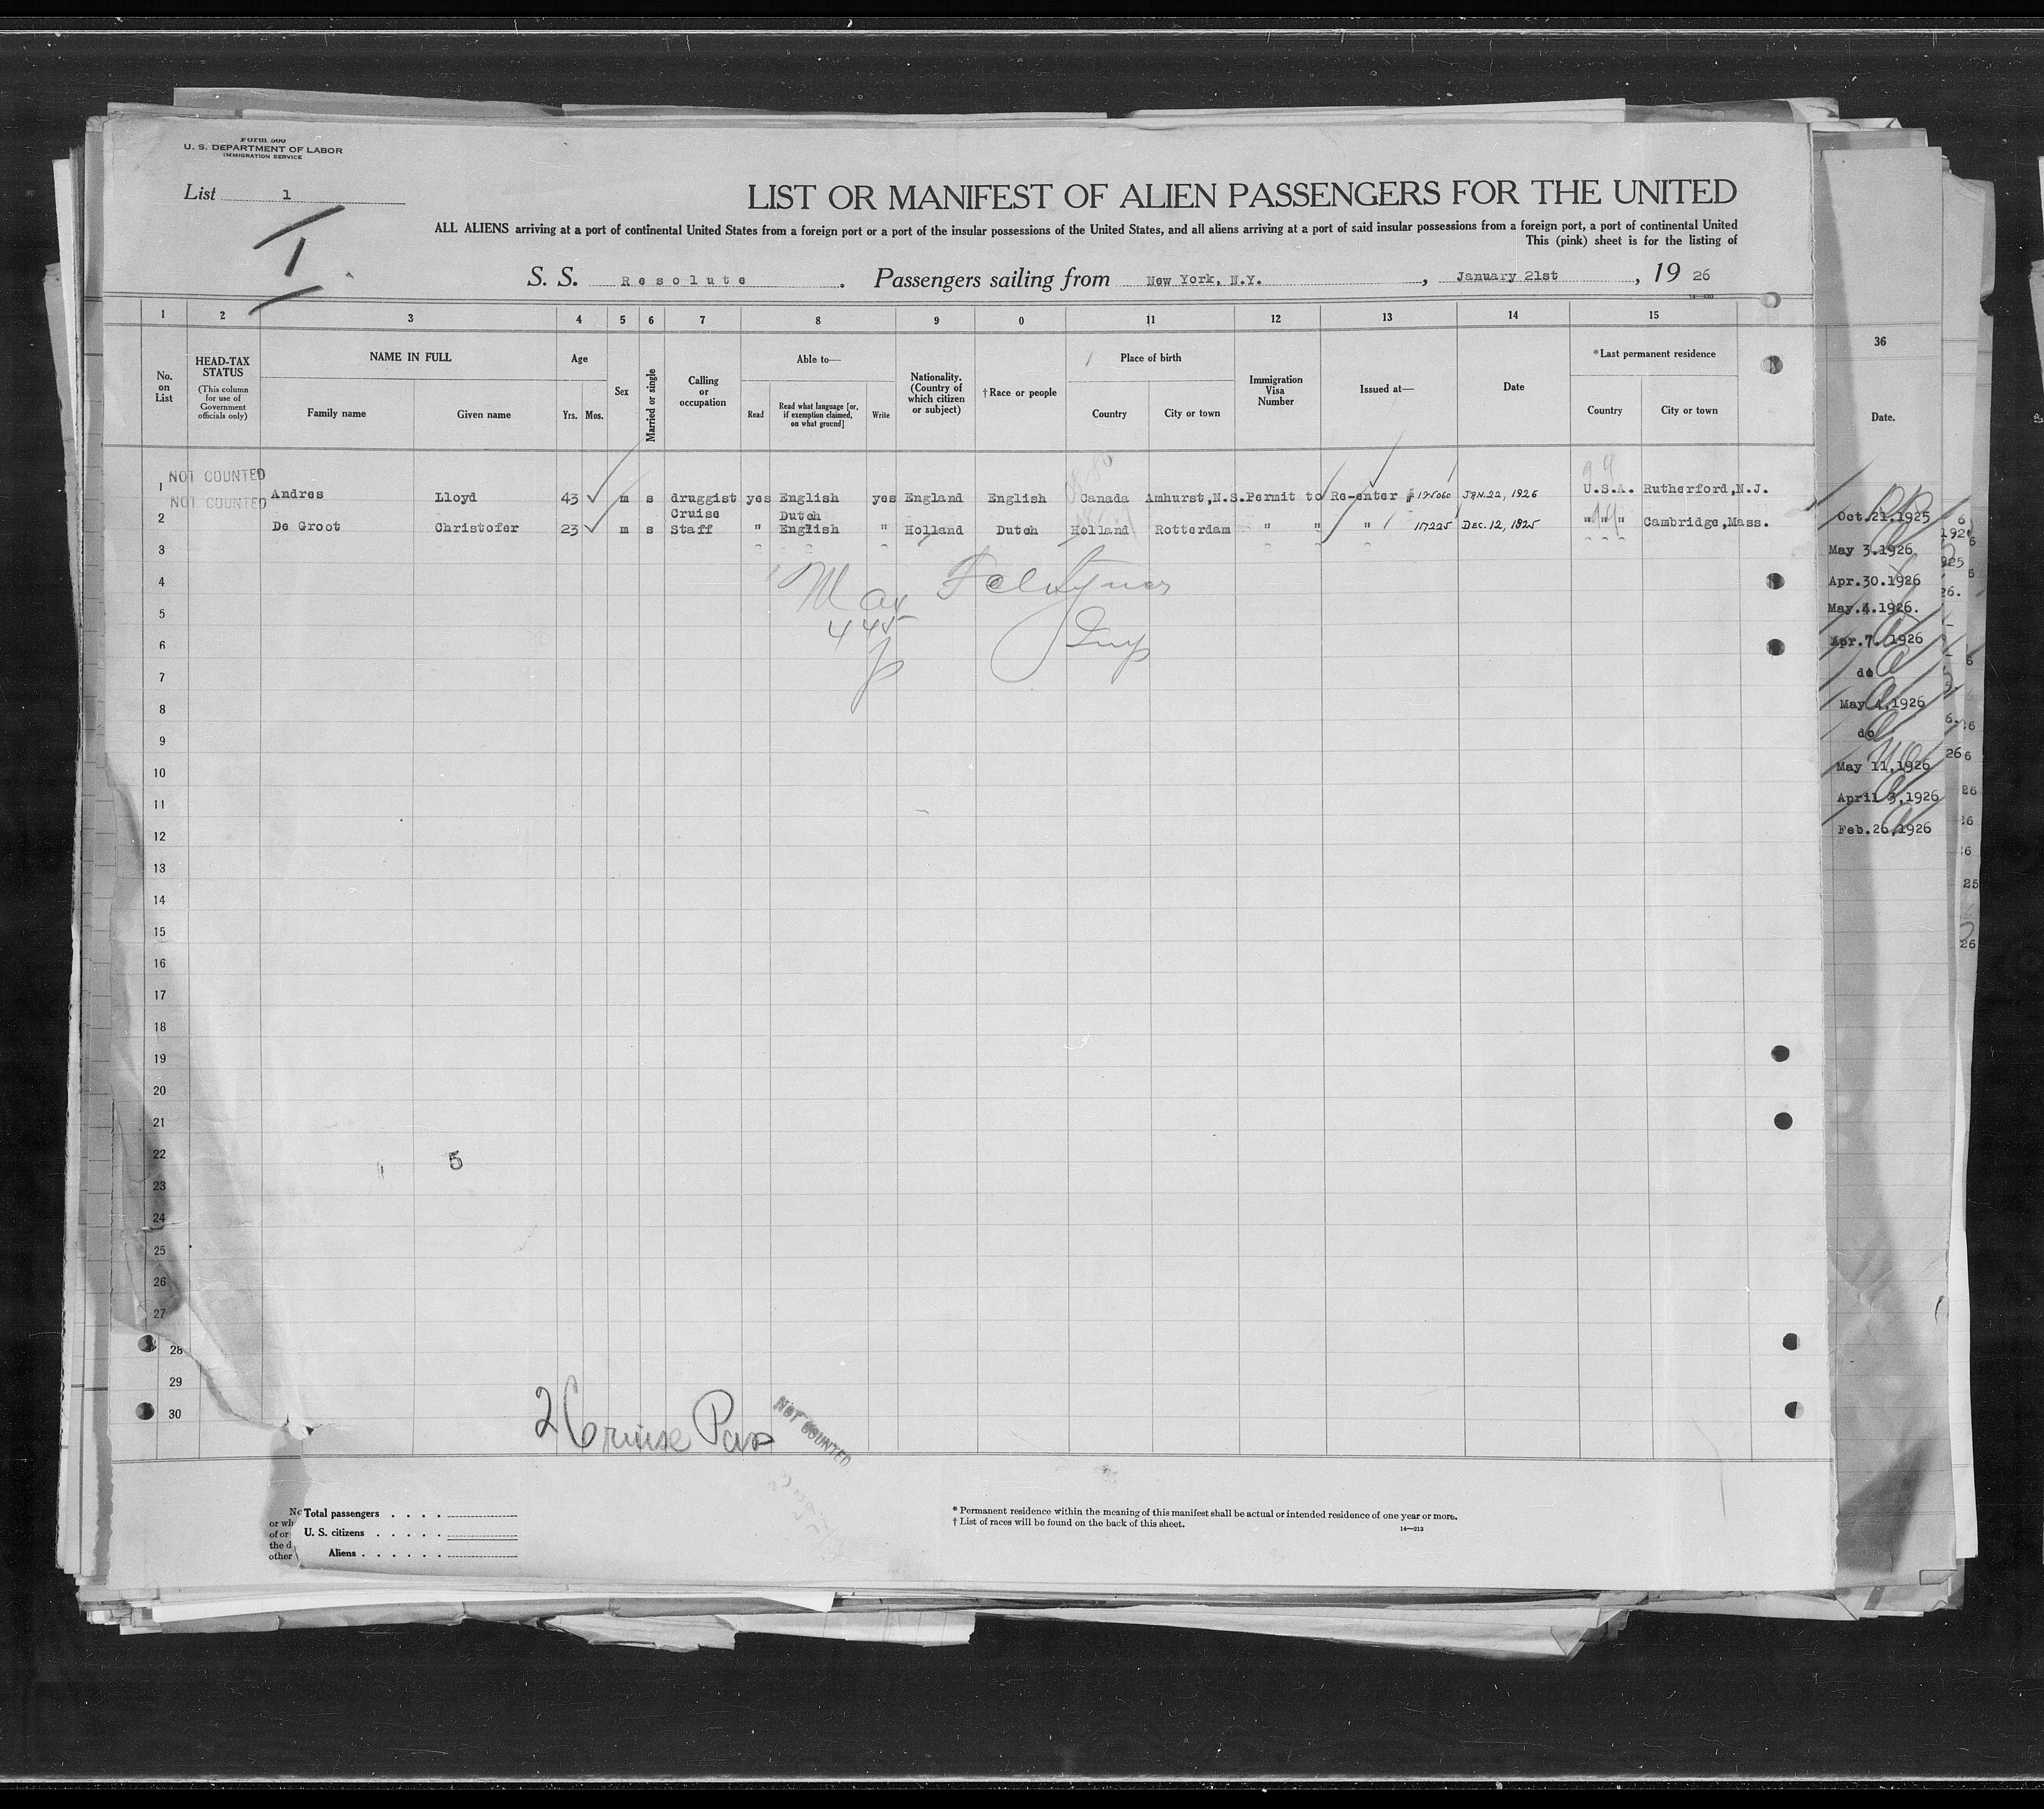 Form 500
U. S. DEPARTMENT OF LABOR
IMMIGRATION SERVICE
List 1
I
LIST OR MANIFEST OF ALIEN PASSENGERS FOR THE UNITED
ALL ALIENS arriving at a port of continental United States from a foreign port or a port of the insular possessions of the United States, and all aliens arriving at a port of said insular possessions from a foreign port, a port of continental United
This (pink) sheet is for the listing of
S. S. Resolute . Passengers sailing from New York, N.Y. , January 21st , 19 26
1 2 3 4 5 6 7 8 9 0 11 12 13 14 15
No. on List
HEAD-TAX STATUS (This column for use of Government officials only)
NAME IN FULL
Family name Given name
Age
Yrs. Mos.
Sex
Married or single
Calling or occupation
Able to—
Read
Read what language [or, if exemption claimed, on what ground]
Write
Nationality. (Country of which citizen or subject)
†Race or people
Place of birth
Country City or town
Immigration Visa Number
Issued at—
Date
*Last permanent residence
Country City or town
NOT COUNTED
1 Andres Lloyd 43 m s druggist yes English yes England English Canada Amhurst,N.S. Permit to Re-enter JAN. 22, 1926 U.S.A. Rutherford,N.J.
NOT COUNTED
2 De Groot Christofer 23 m s Cruise Staff " Dutch English " Holland Dutch Holland Rotterdam " " " 117225 DEC. 12, 1825 " " " Cambridge,Mass.
3
4
5
6
7
8
9
10
11
12
13
14
15
16
17
18
19
20
21
22
23
24
25
26
27
28
29
30
Max
445
Insp
5
2 Cruise Pass
NOT COUNTED
Total passengers
U. S. citizens
Aliens
* Permanent residence within the meaning of this manifest shall be actual or intended residence of one year or more.
† List of races will be found on the back of this sheet.
14—213
36
Date.
Oct.21.1925
May 3.1926
Apr.30.1926
May.4.1926.
Apr.7.1926
do
May 4,1926
do
May 11,1926
April 3,1926
Feb.26,1926